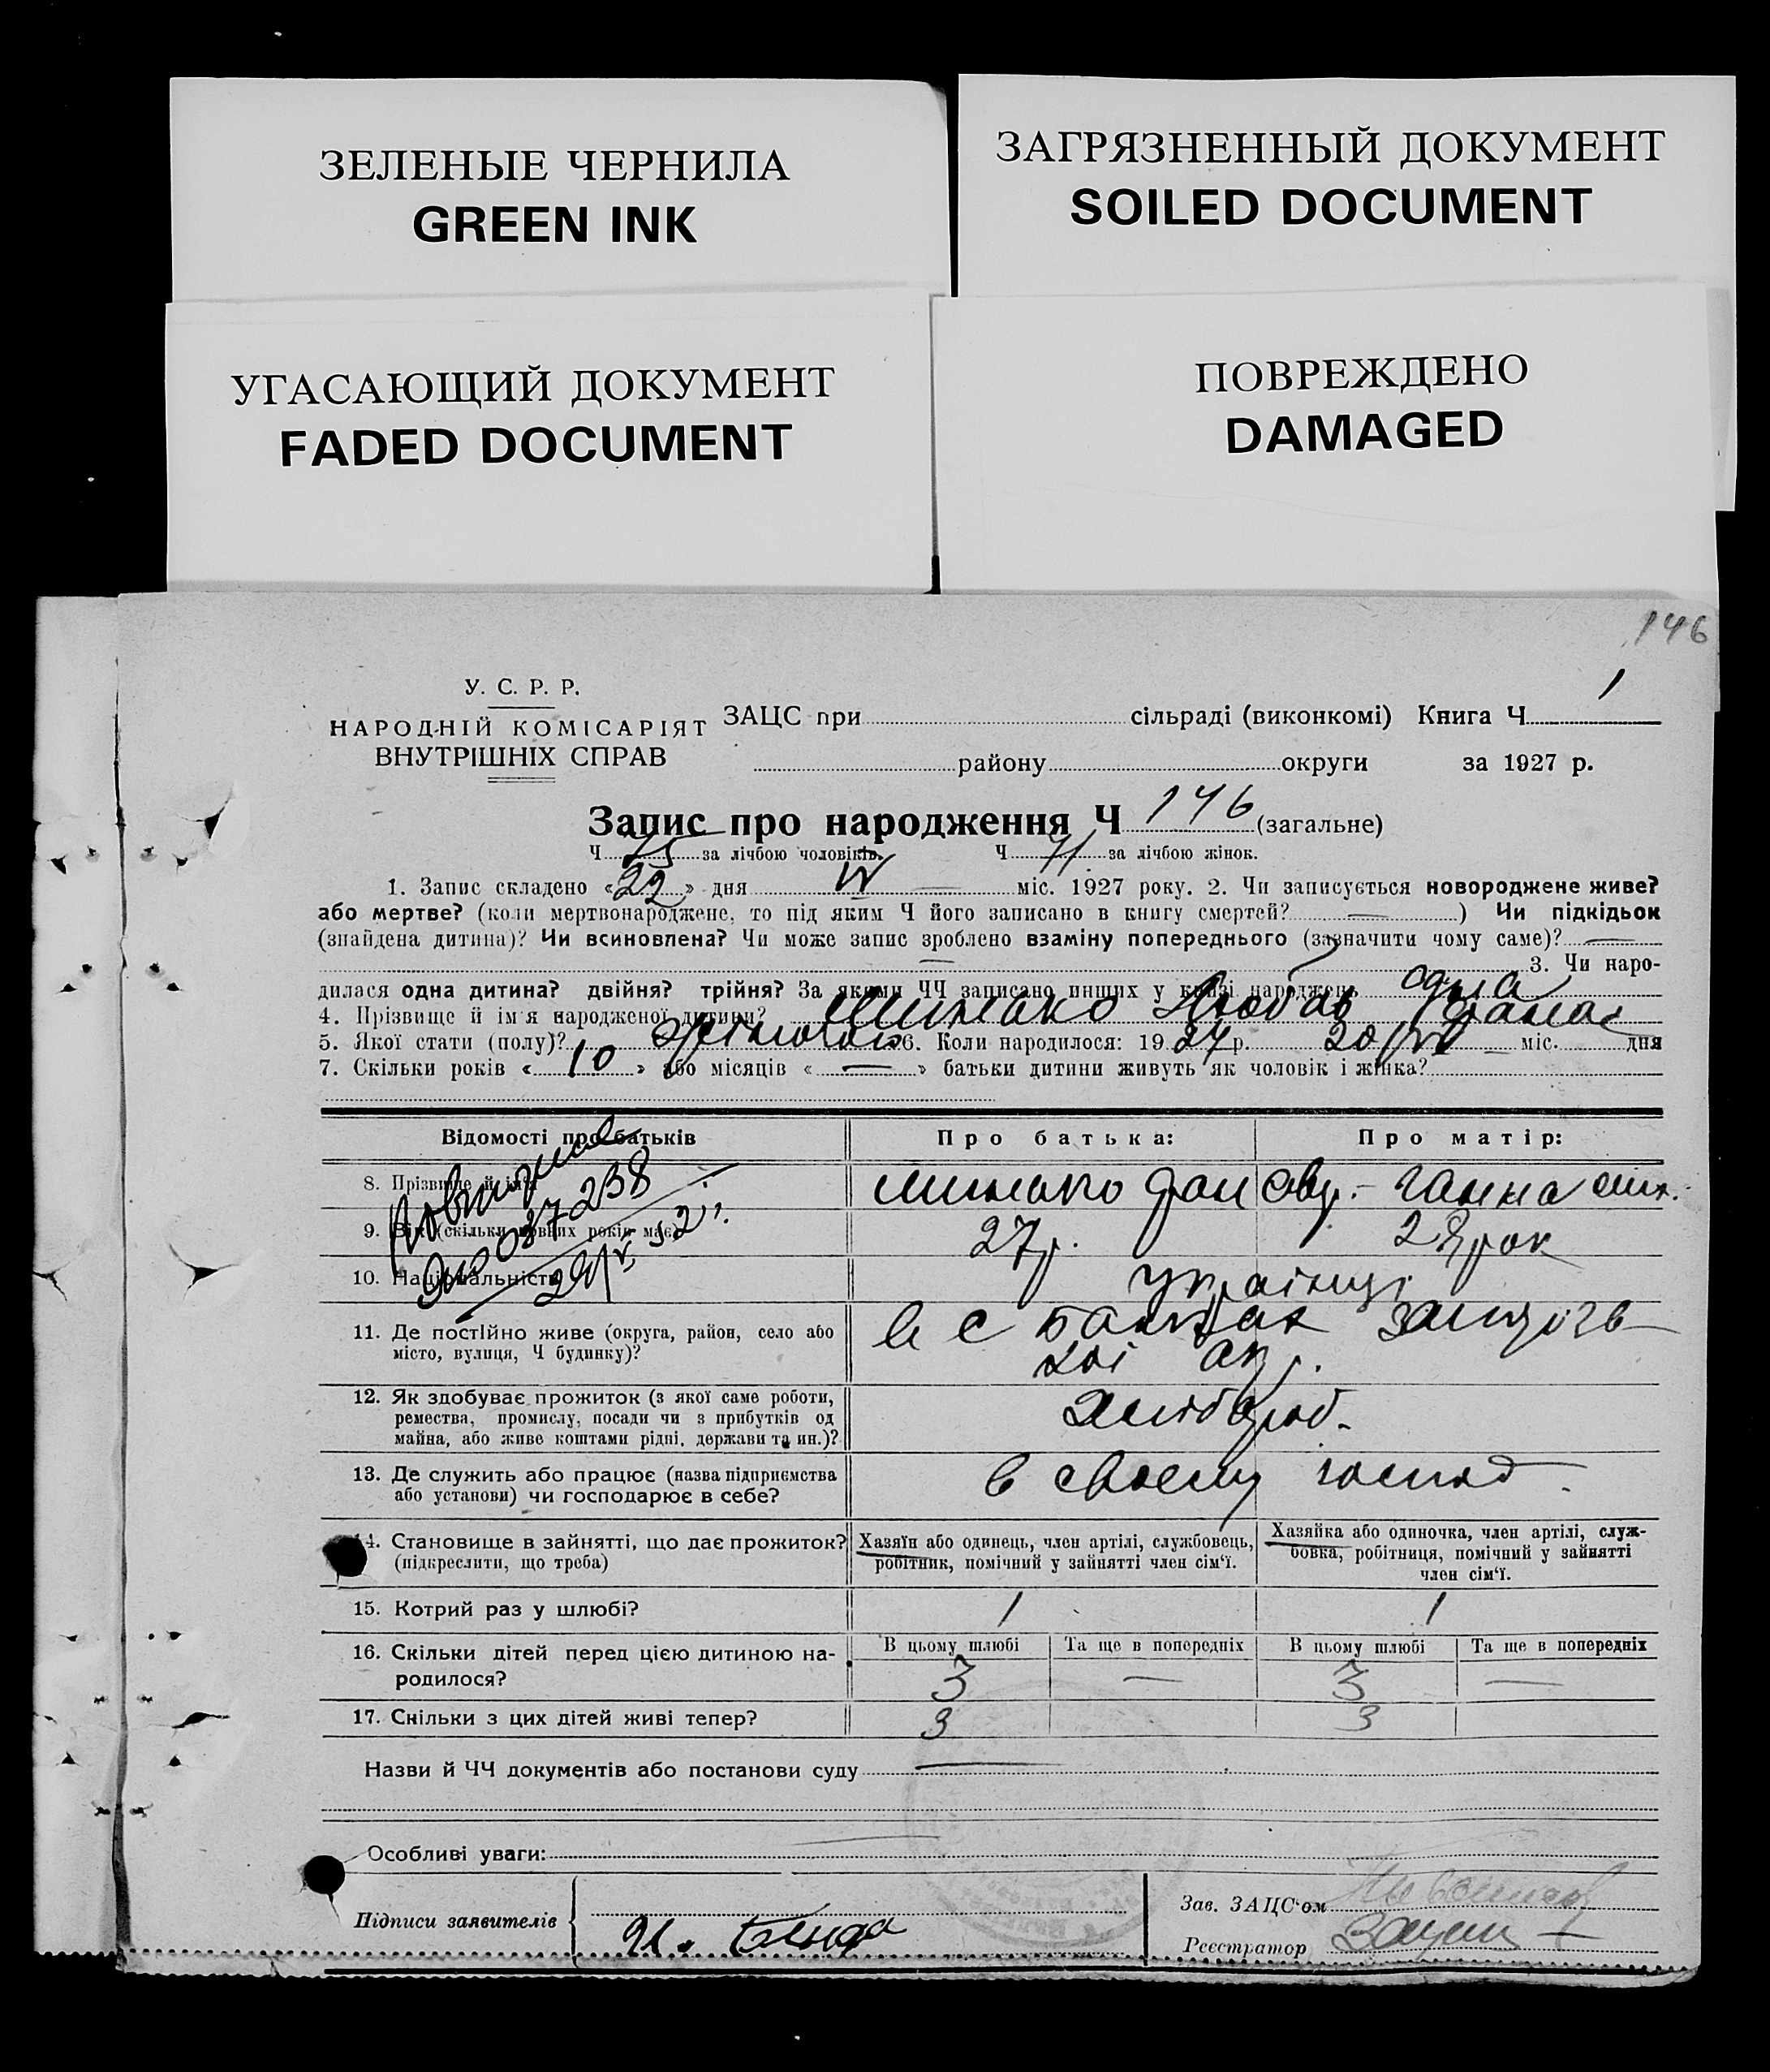 ЗЕЛЕНЫЕ ЧЕРНИЛА
GREEN INK
ЗАГРЯЗНЕННЫЙ ДОКУМЕНТ
SOILED DOCUMENT
УГАСАЮЩИЙ ДОКУМЕНТ
FADED DOCUMENT
ПОВРЕЖДЕНО
DAMAGED
146
У. С. Р. Р.
НАРОДНІЙ КОМІСАРІЯТ
ВНУТРІШНІХ СПРАВ
ЗАЦС при сільраді (виконкомі) Книга Ч 1
району округи за 1927 р.
Запис про народження Ч 146 (загальне)
Ч 75 за лічбою чоловіків. Ч 71 за лічбою жінок.
1. Запис складено «22» дня міс. 1927 року. 2. Чи записується новороджене живе?
або мертве? (коли мертвонароджене, то під яким Ч його записано в книгу смертей? — ) Чи підкідьок
(знайдена дитина)? Чи всиновлена? Чи може запис зроблено взаміну попереднього (зазначити чому саме)? —
— 3. Чи наро-
дилася одна дитина? двійня? трійня? За якими ЧЧ записано инших у книзі народжень одна
4. Прізвище й ім'я народженої дитини? Любов
5. Якої стати (полу)? 6. Коли народилося: 1927 р. 20 міс. дня
7. Скільки років «10» або місяців « — » батьки дитини живуть як чоловік і жінка?
Відомості про батьків
Про батька:
Про матір:
8. Прізвище й ім'я
Ганна
9. Вік (скільки повних років має)
27 р.
28 рок
10. Національність
українці
11. Де постійно живе (округа, район, село або
місто, вулиця, Ч будинку)?
в с
кої окр.
12. Як здобуває прожиток (з якої саме роботи,
ремества, промислу, посади чи з прибутків од
майна, або живе коштами рідні, держави та ин.)?
хлібороб.
13. Де служить або працює (назва підприємства
або установи) чи господарює в себе?
в своєму господ.
14. Становище в зайнятті, що дає прожиток?
(підкреслити, що треба)
Хазяїн або одинець, член артілі, службовець,
робітник, помічний у зайнятті член сім'ї.
Хазяйка або одиночка, член артілі, служ-
бовка, робітниця, помічний у зайнятті
член сім'ї.
15. Котрий раз у шлюбі?
1
1
16. Скільки дітей перед цією дитиною на-
родилося?
В цьому шлюбі
Та ще в попередніх
В цьому шлюбі
Та ще в попередніх
3 — 3 —
17. Скільки з цих дітей живі тепер?
3 3
Назви й ЧЧ документів або постанови суду —
Особливі уваги:
Підписи заявителів
Зав. ЗАЦС'ом
Реєстратор